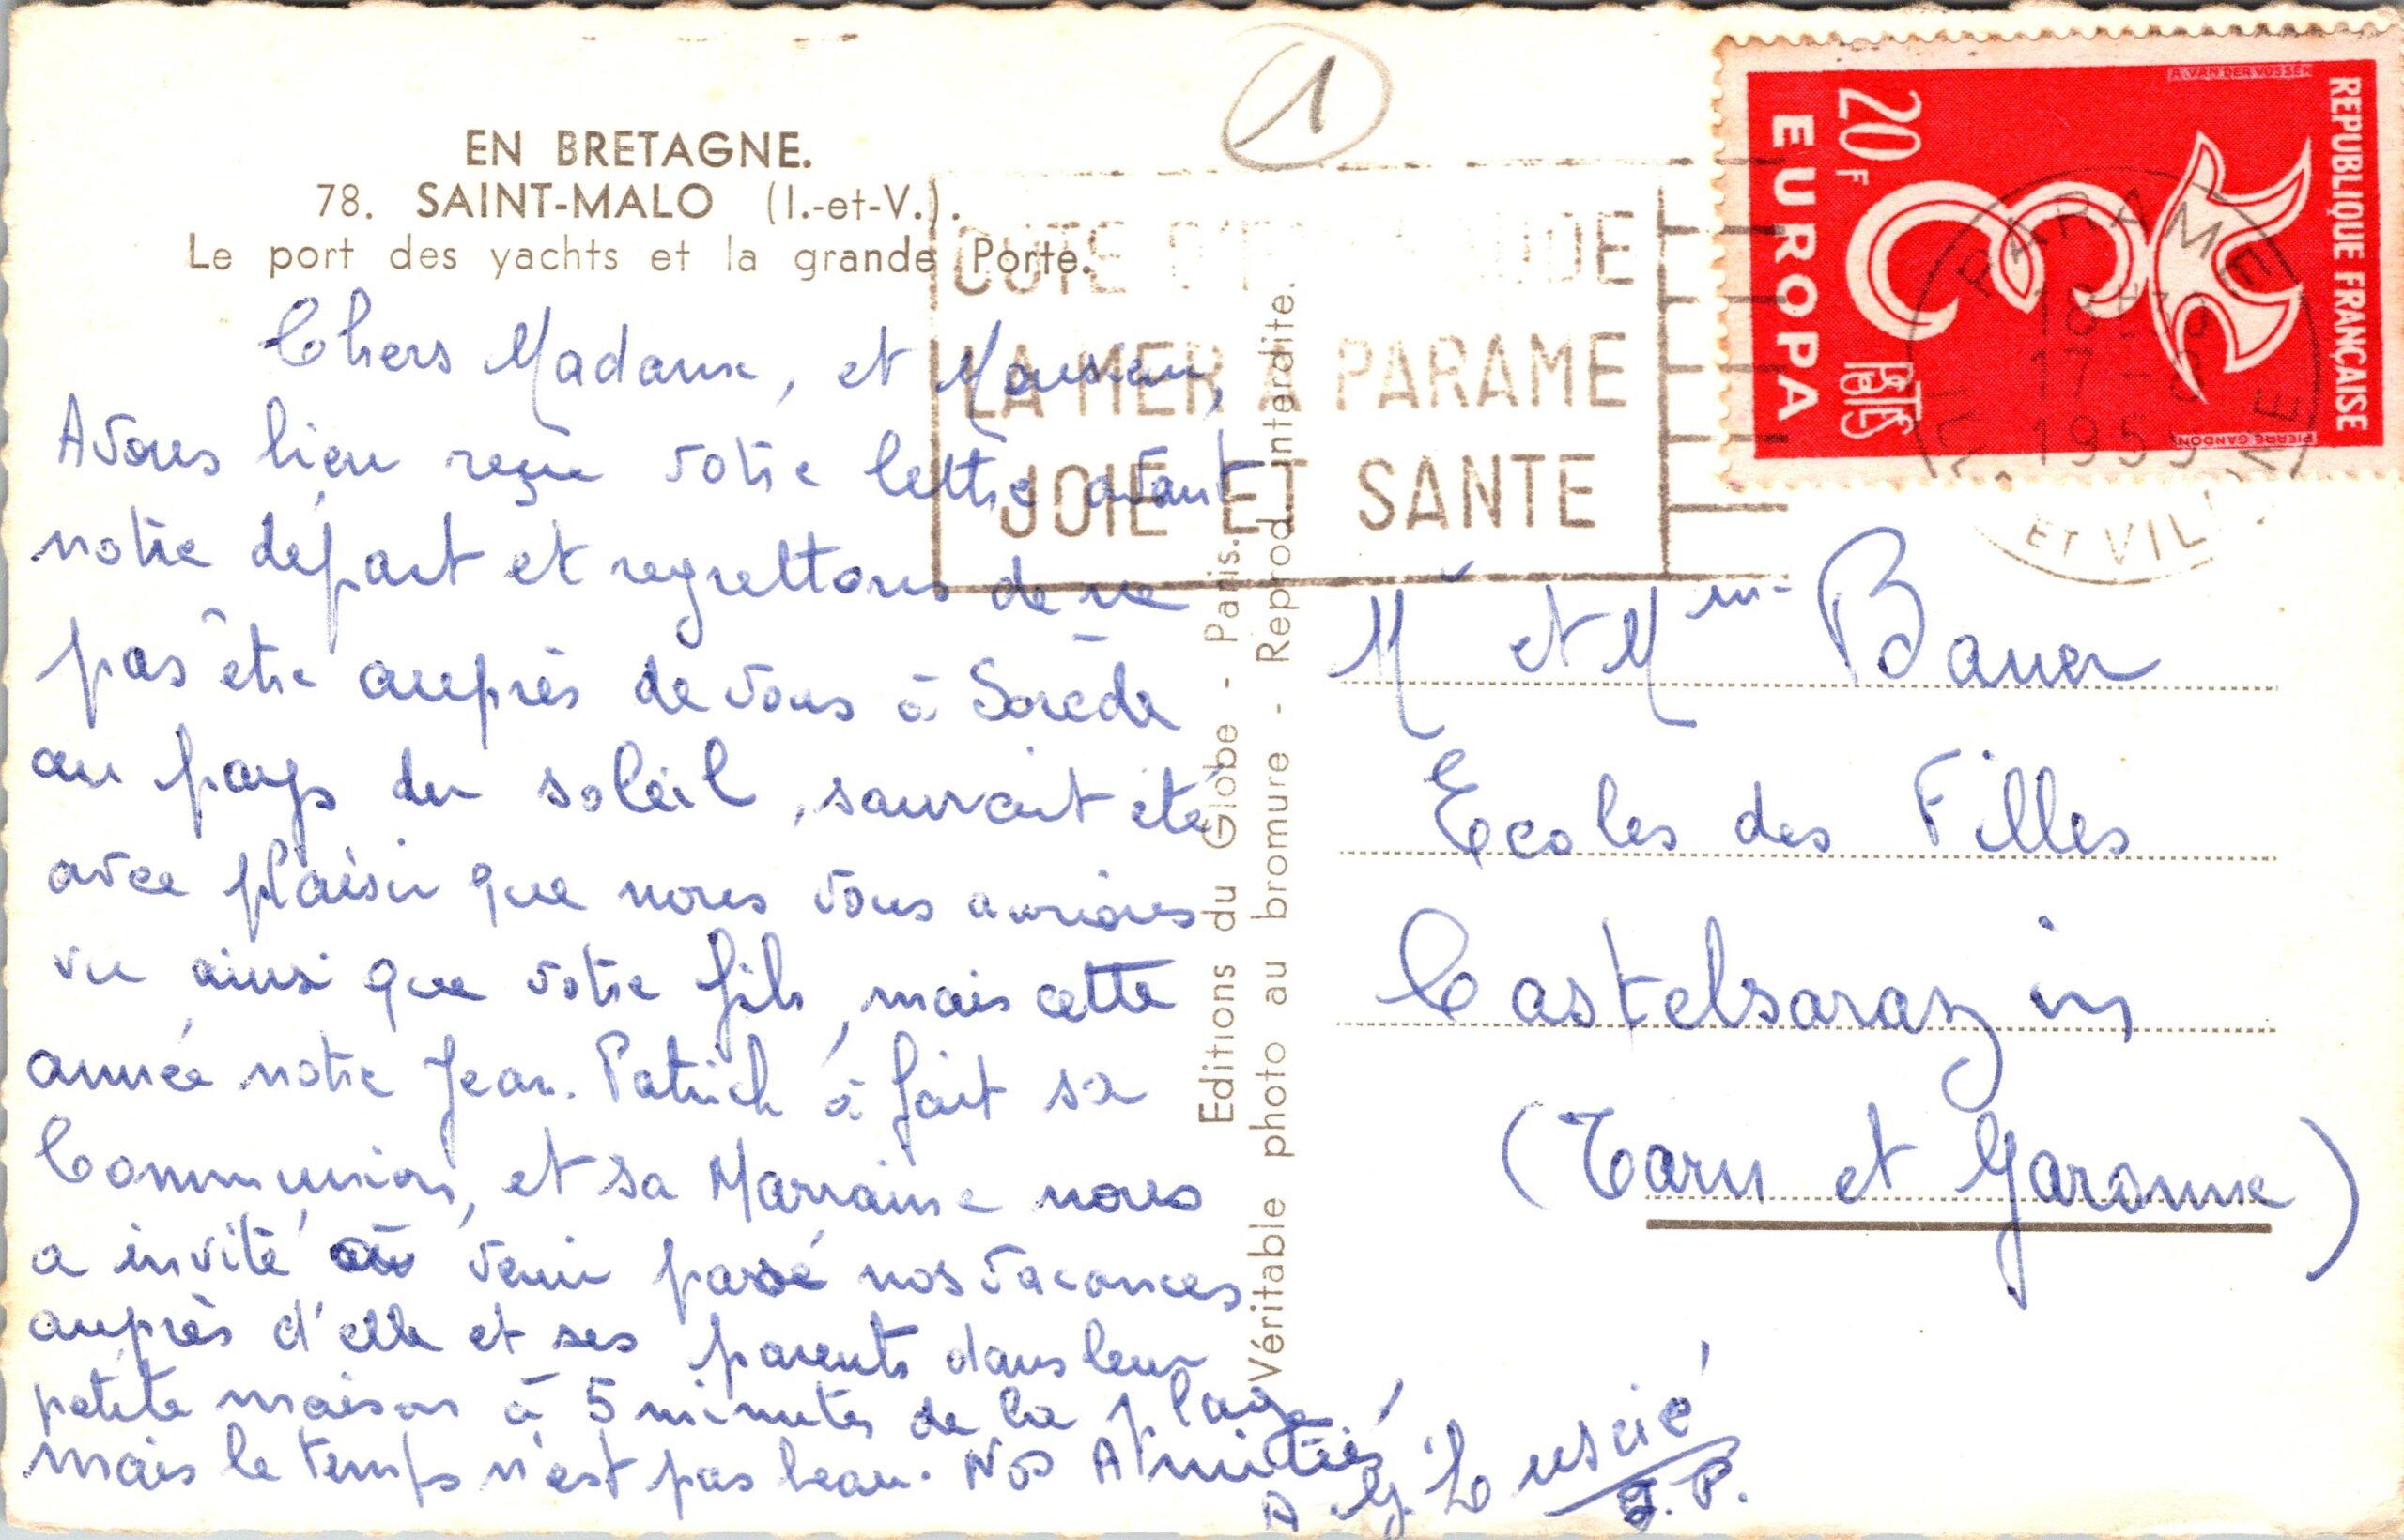 1
EN BRETAGNE.
78. SAINT-MALO (I.-et-V.).
Le port des yachts et la grande Porte.
Chers Madame, et Monsieur,
Avons bien reçue votre lettre avant
notre départ et regrettons de ne
pas être auprès de vous à Sorède
au pays du soleil, saurait été
avec plaisir que nous vous aurions
vu ainsi que votre fils, mais cette
année notre Jean-Patrick à fait sa
Communion, et sa Marraine nous
a invité à venir passé nos vacances
auprès d'elle et ses parents dans leur
petite maison à 5 minutes de la plage
mais le temps n'est pas beau. Nos Amitiés
A. G.
J. P.
Editions du Globe - Paris.
Véritable photo au bromure - Reprod. interdite.
COTE D'EMERAUDE
LA MER A PARAME
JOIE ET SANTE
REPUBLIQUE FRANÇAISE
A. VAN DER VOSSEN
20F
POSTES
EUROPA
PIERRE GANDON
PARAME
18H30
17-8
195
ILLE ET VILAINE
M et Mme Bauer
Ecoles des Filles
Castelsarazin
(Tarn et Garonne)